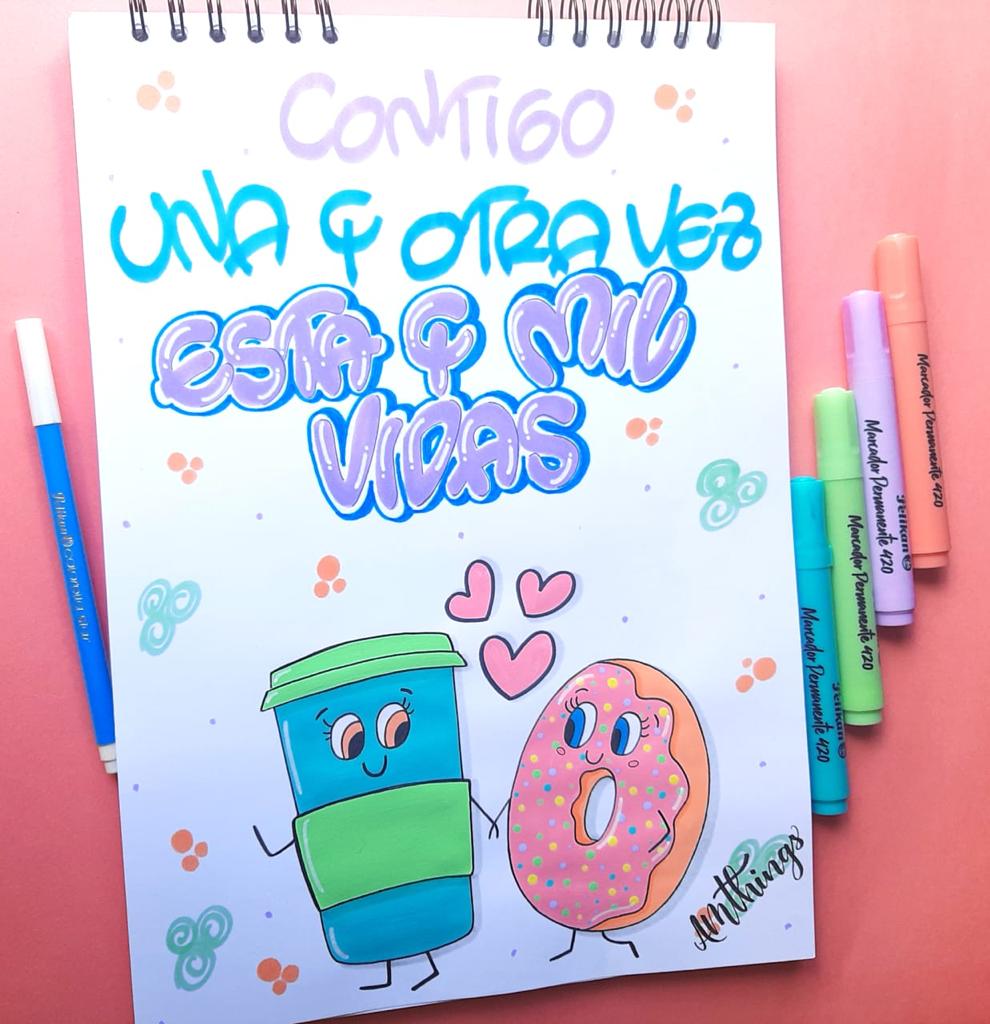 CONTIGO
UNA Y OTRA VEZ
ESTA Y MIL
VIDAS
Marcador Permanente 420
Pelikan
Marcador Permanente 420
Marcador Permanente 420
Pelikan
Marcador Permanente 420